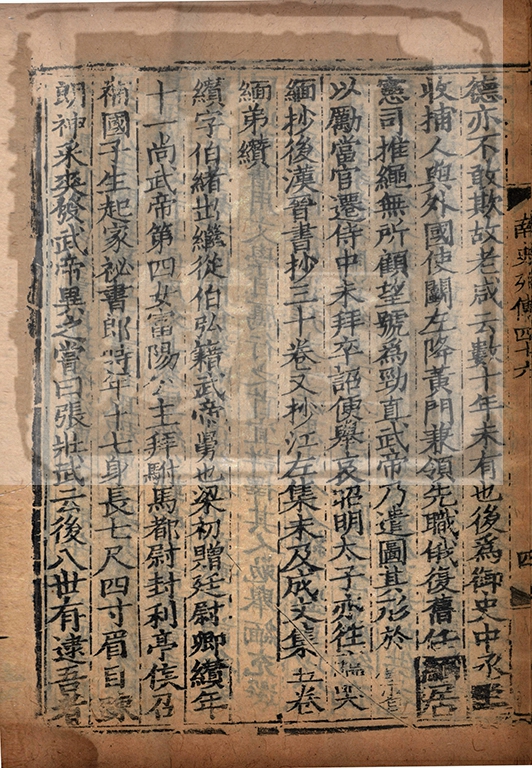 德亦不敢欺故老咸云數十年未有也後爲御史中丞坐
收捕人與外國使鬭左降黃門兼領先職俄復舊任緬居
憲司推繩無所顧望號爲勁直武帝乃遣圖其形於臺省
以勵當官遷侍中未拜卒詔便舉哀昭明太子亦往臨哭
緬抄後漢晉書抄三十卷又抄江左集未及成文集五卷
緬弟纘
纘字伯緒出繼從伯弘籍武帝舅也梁初贈廷尉卿纘年
十一尚武帝第四女富陽公主拜駙馬都尉封利亭侯召
補國子生起家祕書郎時年十七身長七尺四寸眉目疎
朗神采爽發武帝異之嘗曰張壯武云後八世有逮吾者
南史列傳四十六
四